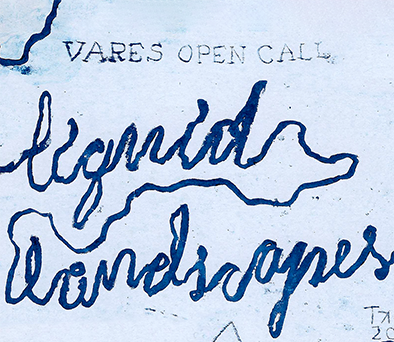 VARES OPEN CALL
liquid
landscapes